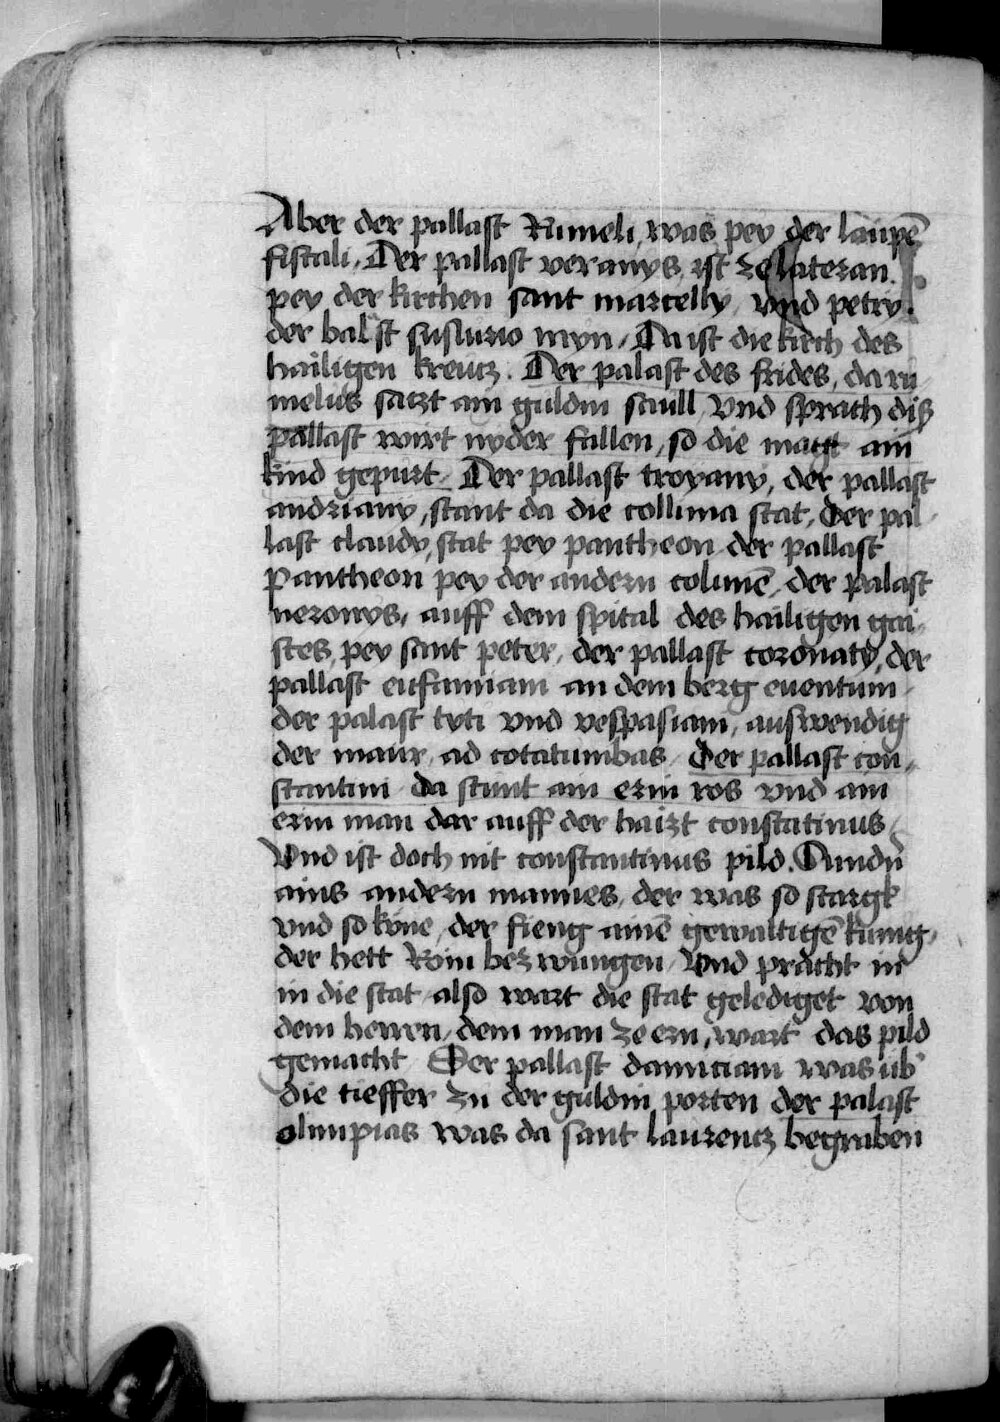 Aber der pallast Rumeli was pey der laupē
fistali. Der pallast veranys ist ze lateran.
pey der kirchen sant marcelly vnd petry.
der balst susurro myn. Da ist die kirch des
hailigen kreutz. Der palast des frides, da ru
melus satzt ain guldin saull vnd sprach diß
pallast wirt nyder fallen, so die magt ain
kind gepürt. Der pallast troyany, der pallast
andriany, stant da die collima stat, Der pal
last claudy, stat pey pantheon der pallast
Pantheon pey der andern colimē, der palast
neronys, auff dem spital des hailigen gai
stes, pey sant peter, der pallast coronaty, der
pallast eufimiam an dem berg euentum
der palast tyti vnd vespasiam, auswendig
der maur, ad cotatumbas. Der pallast con
stantini da stunt ain erin ros vnd ain
erin man dar auff der haizt constatinus
Vnd ist doch nit constantinus pild. Sundn̄
ains andern mannes, der was so stargk
vnd so kyne, der fieng ainē gewaltigē kunig,
der hett Rom bezwungen, Vnd pracht in
in die stat, also wart die stat gelediget von
dem herren, dem man ze ern, wart das pild
gemacht Der pallast damiciam was üb'
die tieffer zu der guldin porten der palast
olimpias was da sant laurentz begraben